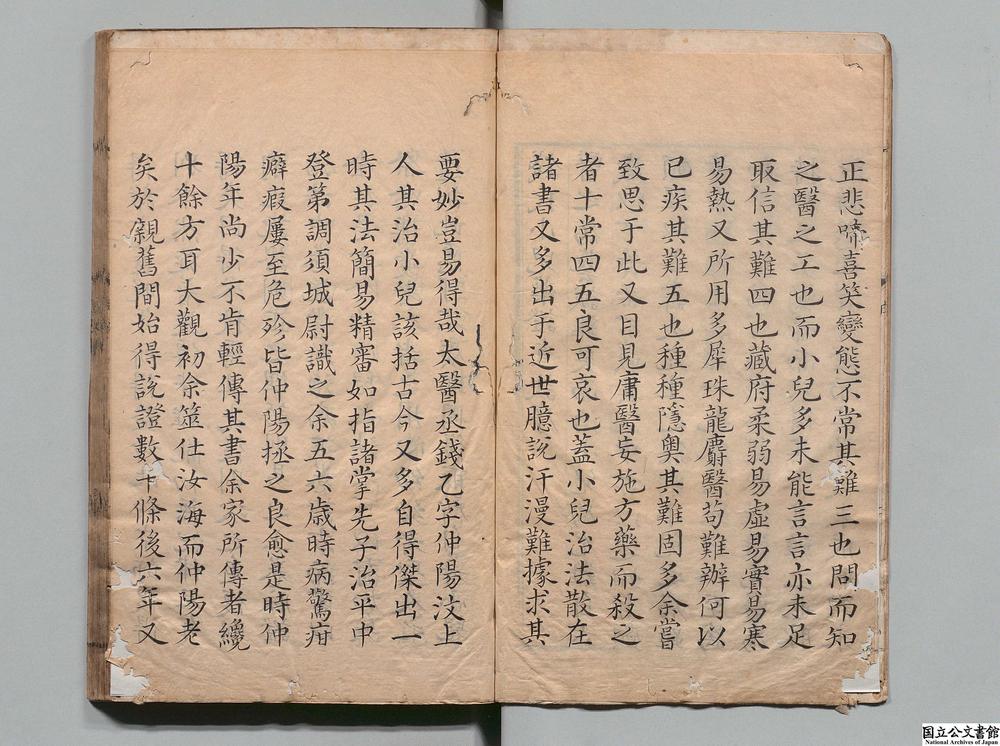 正悲啼喜笑變態不常其難三也問而知
之醫之工也而小兒多未能言言亦未足
取信其難四也藏府柔弱易虛易實易寒
易熱又所用多犀珠龍麝醫苟難辦何以
已疾其難五也種種隱奧其難固多余嘗
致思于此又目見庸醫妄施方藥而殺之
者十常四五良可哀也蓋小兒治法散在
諸書又多出于近世臆說汗漫難據求其
要妙豈易得哉太醫丞錢乙字仲陽汶上
人其治小兒該括古今又多自得傑出一
時其法簡易精審如指諸掌先子治平中
登第調須城尉識之余五六歲時病驚疳
癖瘕屢至危殆皆仲陽拯之良愈是時仲
陽年尚少不肯輕傳其書余家所傳者纔
十餘方耳大觀初余筮仕汝海而仲陽老
矣於親舊間始得說證數十條後六年又
国立公文書館
National Archives of Japan